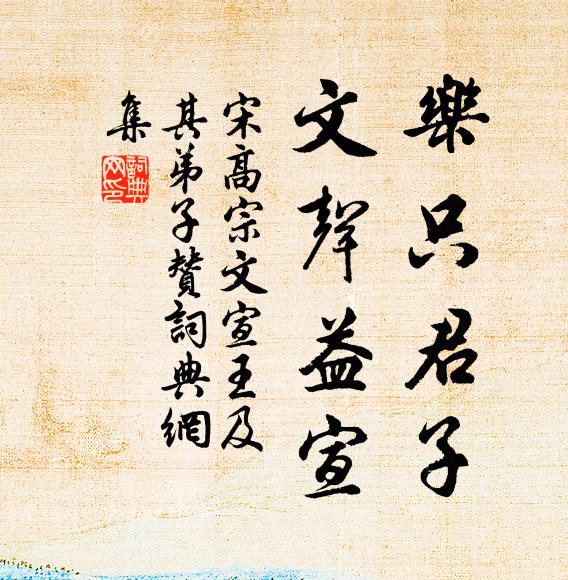 樂只君子
文聲益宣
宋高宗文宣王及
其弟子贊詞典網
集
詞典網印